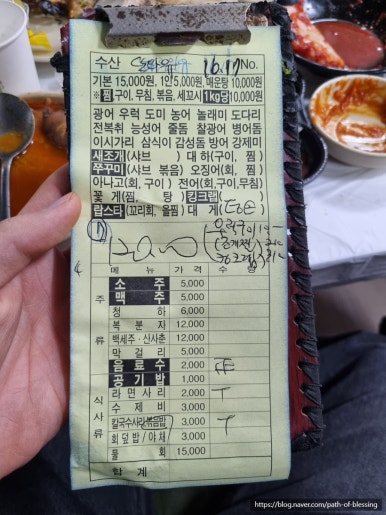 수산 16.17 No.
기본 15,000원, 1인5,000원, 매운탕 10,000원
※찜, 구이, 무침, 볶음, 세꼬시 1kg당10,000원
광어 우럭 도미 농어 놀래미 도다리
전복취 능성어 줄돔 찰광어 병어돔
이시가리 삼식이 감성돔 방어 강제미
새조개(샤브 ) 대 하(구이, 찜 )
쭈꾸미(샤브 볶음) 오징어(회, 찜 )
아나고(회, 구이 ) 전어(회,구이,무침)
꽃 게(찜, 탕 ) 킹크랩(
랍스타(꼬리회, 올찜) 대 게(
메 뉴 가 격 수 량
주류
소 주 5,000
맥 주 5,000
청 하 6,000
복 분 자 12,000
백세주·산사춘 12,000
막 걸 리 5,000
음 료 수 2,000
공 기 밥 1,000
식사류
라 면 사 리 2,000
수 제 비 3,000
칼국수사리,볶음밥 3,000
회 덮 밥 / 야 채 3,000
물 회 15,000
합 계
https://blog.naver.com/path-of-blessing